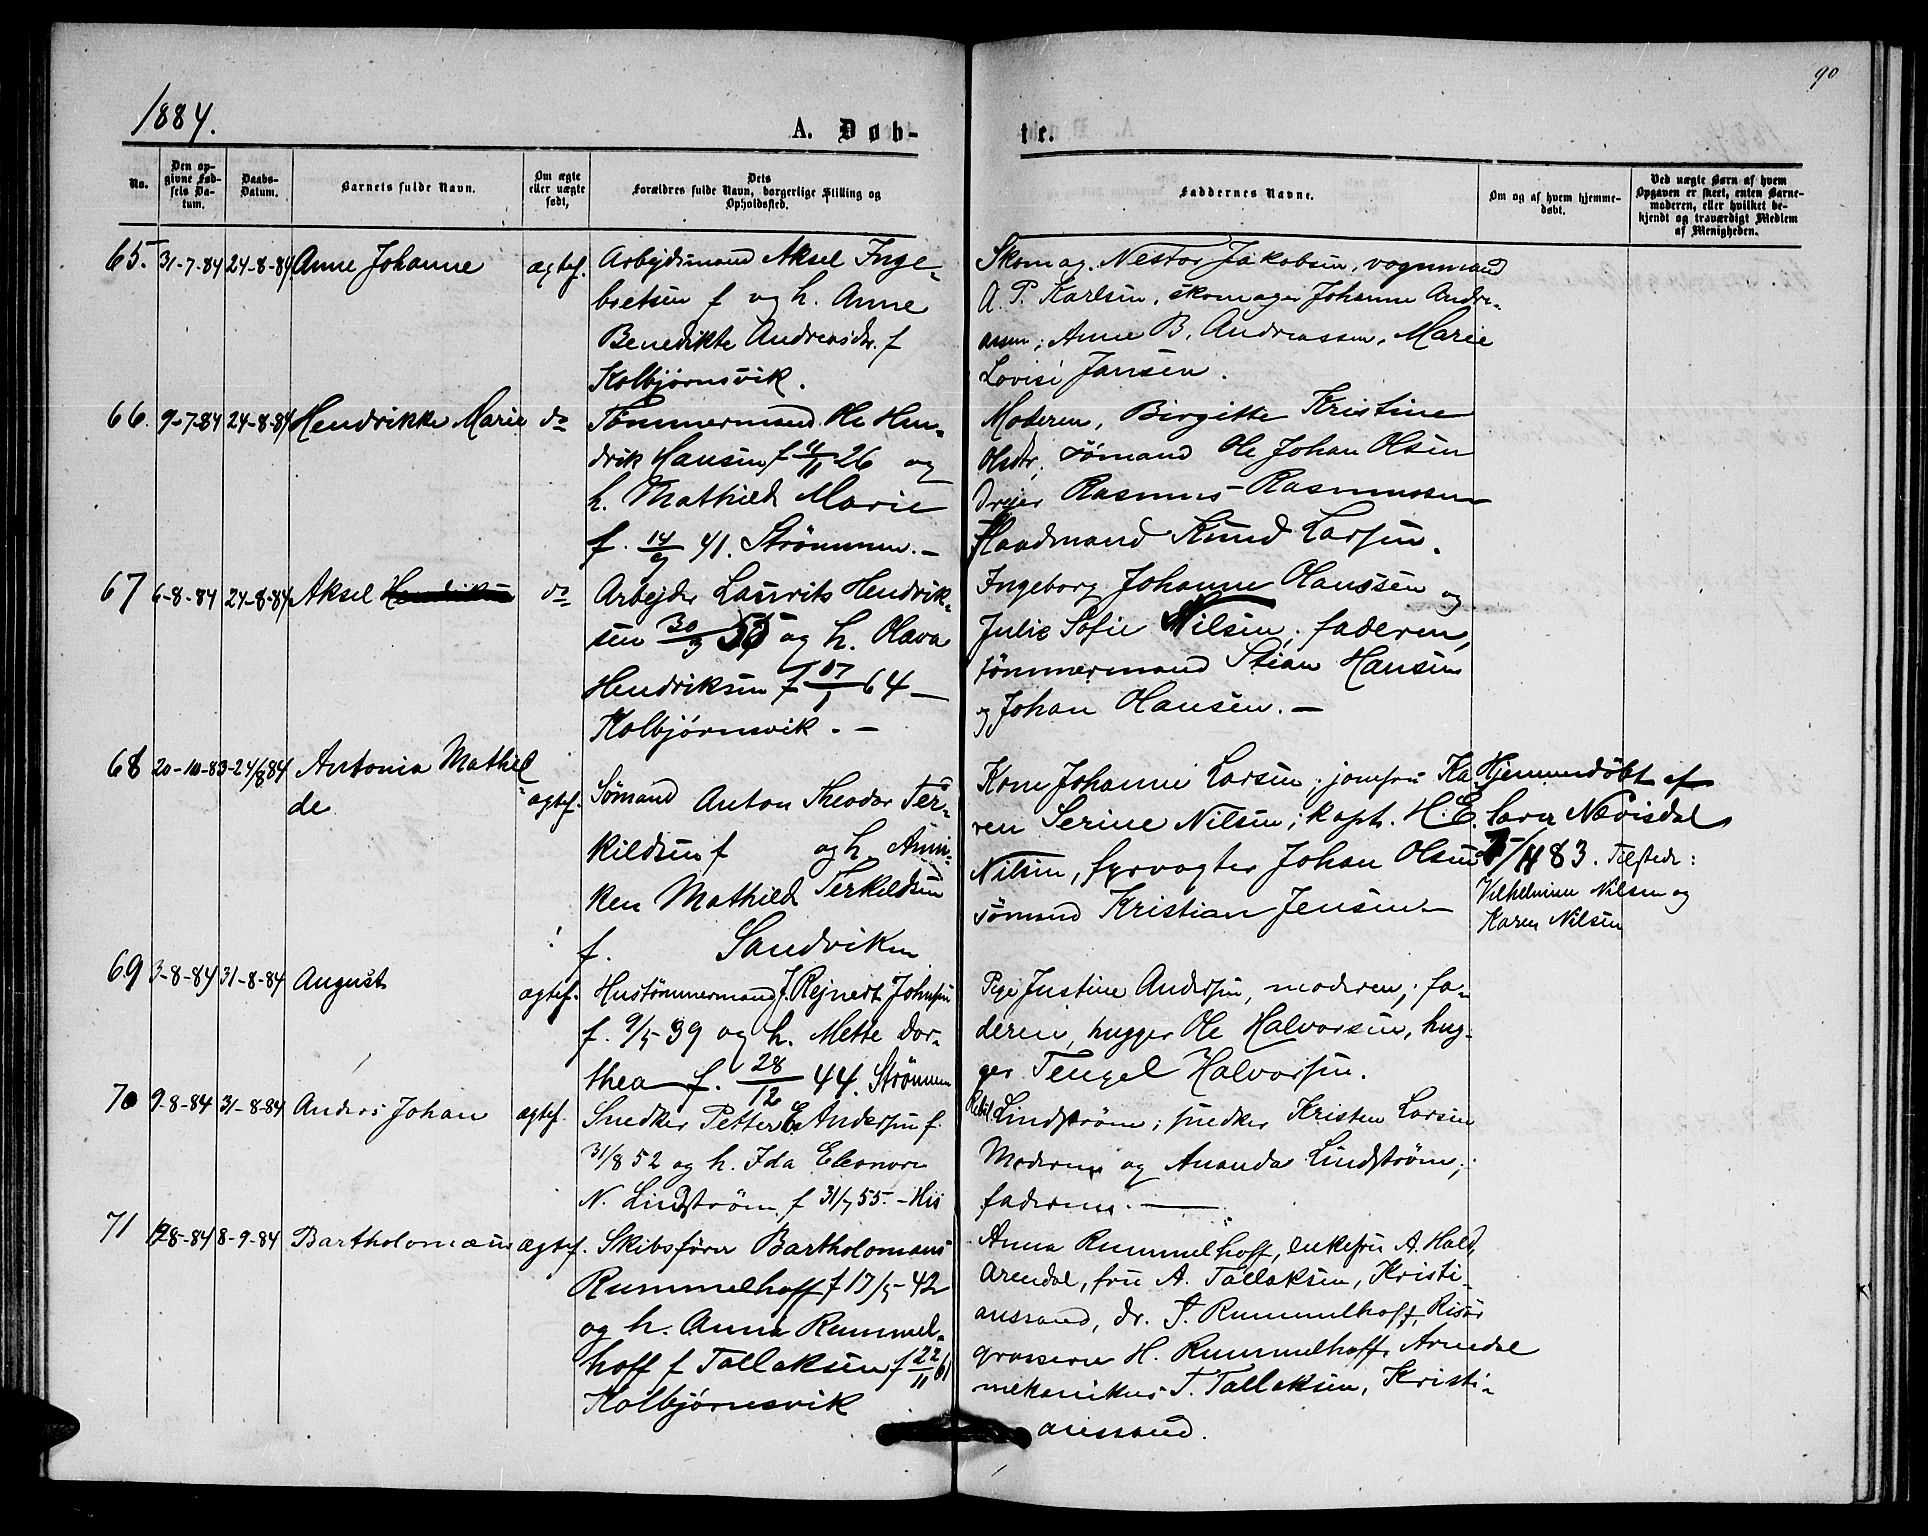 90
1884.
A. Døb-
te.
No.
Den opgivne Fødsels Datum.
Daabs-Datum.
Barnets fulde Navn.
Om ægte eller uægte født,
Dets Forældres fulde Navn, borgerlige Stilling og Opholdssted.
Faddernes Navne.
Om og af hvem hjemmedøbt.
Ved uægte Børn af hvem Opgaven er skeet, enten Barnemoderen, eller hvilket bekjendt og troværdigt Medlem af Menigheden.
65. 31-7-84 24-8-84 Anne Johanne ægtef. Arbejdsmand Aksel Inge-
bretsen f og h. Anne
Benedikte Andreasdr. f
Kolbjørnsvik.
Skomag. Nestor Jakobsen, vognmand
A. P. Karlsen, skomager Johanne Andre-
assen; Anne B. Andreassen, Marie
Lovise Jansen.
66. 9-7-84 24-8-84 Hendrikke Marie do Tømmermand Ole Hen-
drik Hansen f 26 og
h. Mathild Marie
f. 14/9 41. Strømmen. -
Moderen, Birgitte Kristine
Olsdtr. sømand Ole Johan Olsen
Drejer Rasmus Rasmussen
Knud Larsen.
67 6-8-84 24-8-84 Aksel do Arbejder Laurits Hendrik-
sen og h. Olava
Hendriksen f 64 -
Kolbjørnsvik. -
Ingeborg Johanne Hanssen og
Julie Sofie Nilsen; faderen,
tømmermand Stian Hansen
og Johan Hansen. -
68 20-10-83 - 24/8 84 Antonia Mathil-
de
ægtef. Sømand Anton Theodor Ter-
kildsen f og h. Anni-
ken Mathild Terkildsen
f. Sandviken
Kone Johanne Larsen; jomfru Ka-
ren Serine Nilsen; kapt. H. E.
Nilsen, fyrvogter Johan Olsen
sømand Kristian Jensen -
Hjemmedøbt af
Nævisdal
83. Tilstede:
Vilhelmine Nilsen og
Karen Nilsen
69 3-8-84 31-8-84 August ægtef. Hustømmermand J. Rejnert Johnsen
f. 9/5 39 og h. Mette Dor-
thea f. 28/12 44. Strømmen
Pige Justine Andersen, moderen; fa-
deren, hugger Ole Halvorsen, hug-
ger Tengel Halvorsen.
70 9-8-84 31-8-84 Anders Johan ægtef. Snedker Petter E. Andersen f.
31/8 52 og h. Ida Eleonore
N. Lindstrøm f 31/7 55. - His
Lindstrøm; snedker Kristen Larsen
Moderen og Ananda Lindstrøm;
faderen. -
71 8-84 8-9-84 Bartholomæus ægtef. Skibsfører Bartholomæus
Rummelhoff f 17/5 - 42
og h. Anna Rummel-
hoff f Tallaksen f 22/11 61
Kolbjørnsvik
Anna Rummelhoff, enkefru A. Hald,
Arendal, fru A. Tallaksen, Kristi-
anssand, dr. S. Rummelhoff, Risør
grosserer H. Rummelhoff, Arendal
mekanikus T. Tallaksen, Kristi-
anssand.